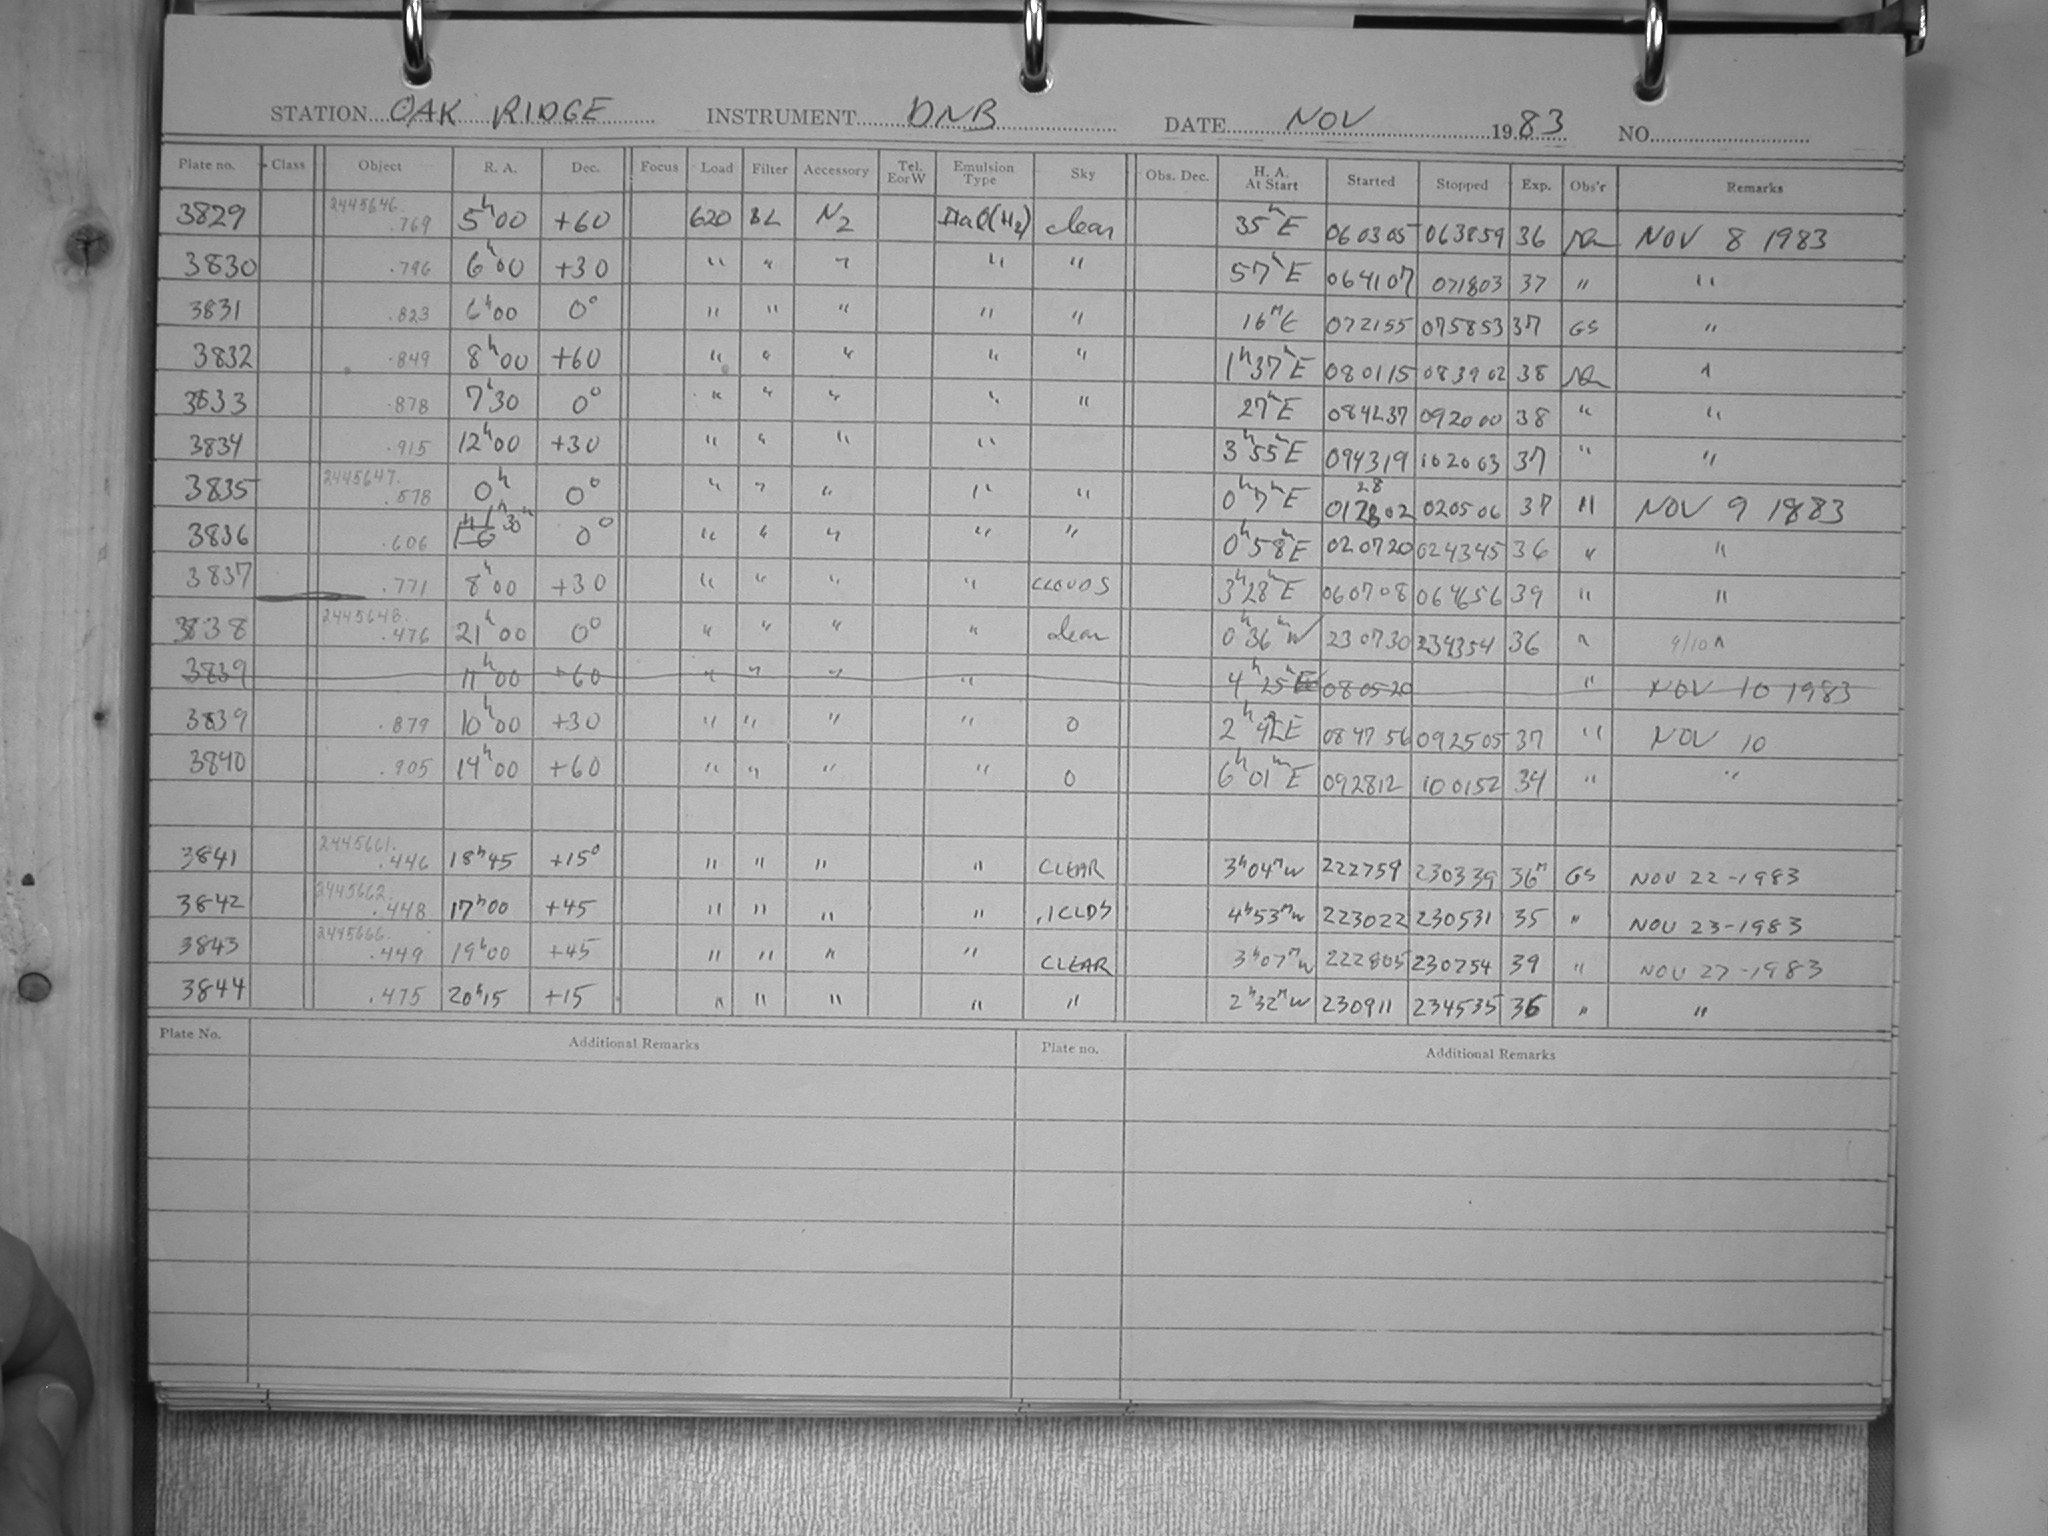 STATION OAK RIDGE INSTRUMENT DNB DATE NOV 1983 NO.
Plate no. Class Object R. A. Dec. Focus Load Filter Accessory Tel. E or W Emulsion Type Sky Obs. Dec. H. A. At Start Started Stopped Exp. Obs'r Remarks
3829 2445646.769 5h00 +60 620 BL N2 IIaO(H2) clear 35mE 060305 063859 36 NOV 8 1983
3830 .796 6h00 +30 " " " " " 57mE 064107 071803 37 " "
3831 .823 6h00 0° " " " " " 16mE 072155 075853 37 GS "
3832 .849 8h00 +60 " " " " " 1h37mE 080115 083902 38 "
3833 .878 7h30 0° " " " " " 27mE 084237 092000 38 " "
3834 .915 12h00 +30 " " " " 3h55mE 094319 102003 37 " "
3835 2445647.578 0h 0° " " " " " 0h7mE 28 012802 020506 37 " NOV 9 1983
3836 .606 1h30m 0° " " " " " 0h58mE 020720 024345 36 " "
3837 .771 8h00 +30 " " " " CLOUDS 3h28mE 060708 064656 39 " "
3838 2445648.476 21h00 0° " " " " clear 0h36mW 230730 234354 36 " 9/10 "
3839 11h00 +60 " " " " 4h25mE 080520 " NOV 10 1983
3839 .879 10h00 +30 " " " " 0 2h42E 084756 092505 37 " NOV 10
3840 .905 14h00 +60 " " " " 0 6h01mE 092812 100152 34 " "
3841 2445661.446 18h45 +15° " " " " CLEAR 3h04mW 222759 230339 36m GS NOV 22-1983
3842 2445662.448 17h00 +45 " " " " .1CLDS 4h53mW 223022 230531 35 " NOV 23-1983
3843 2445666.449 19h00 +45 " " " " CLEAR 3h07mW 222805 230754 39 " NOV 27-1983
3844 .475 20h15 +15 " " " " " 2h32mW 230911 234535 36 " "
Plate No. Additional Remarks Plate no. Additional Remarks